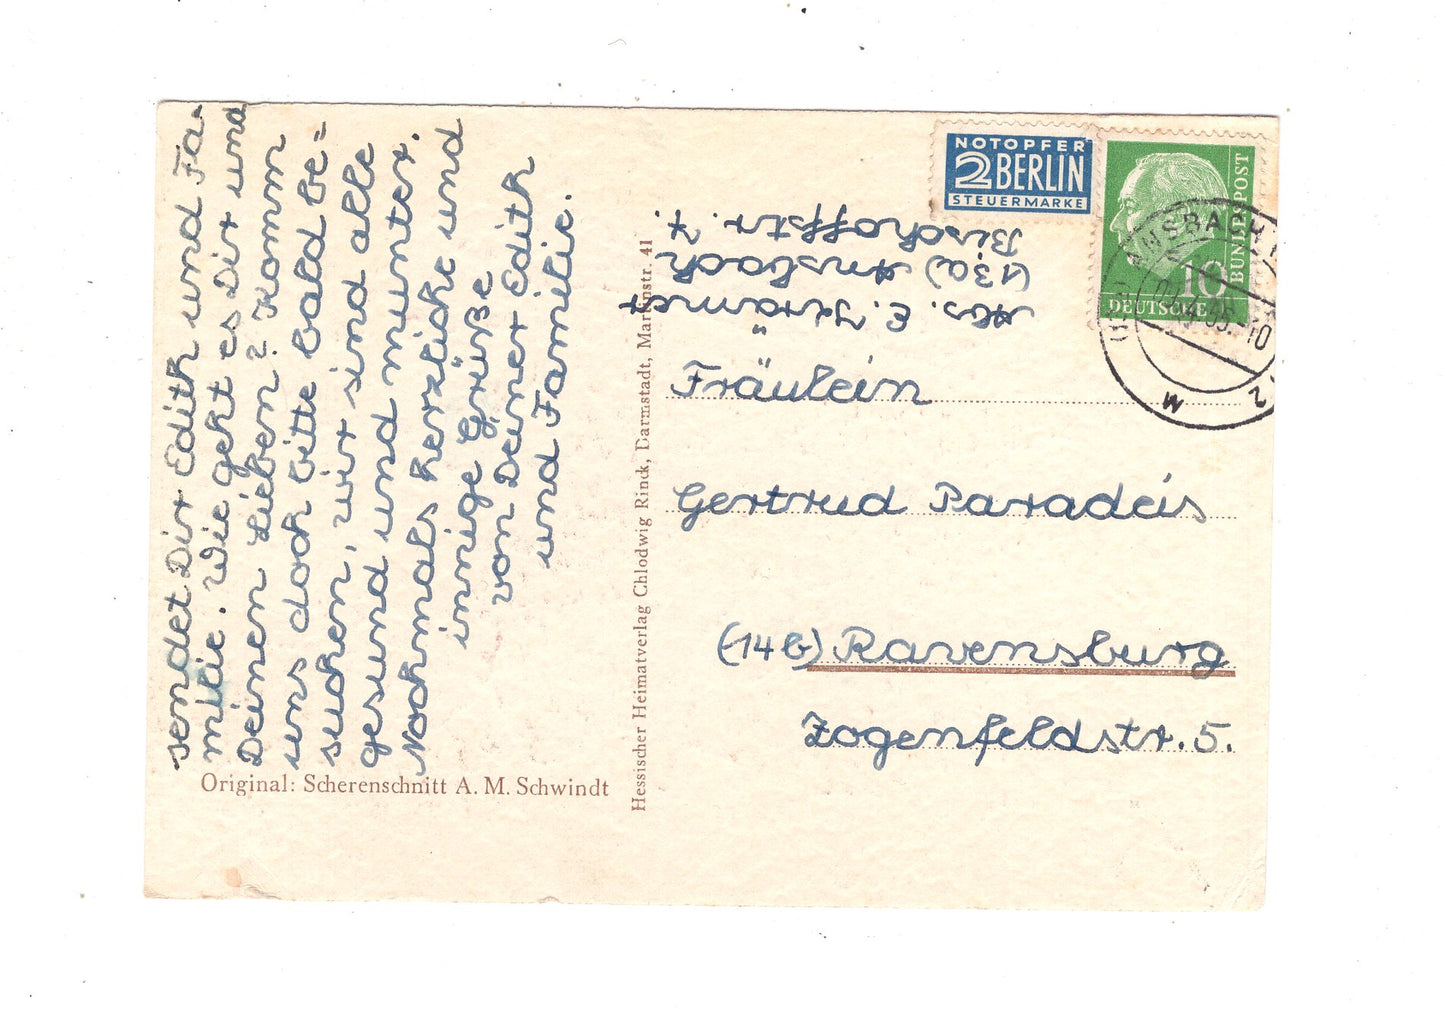 sendet Dir Edith und Fa-
milie. Wie geht es Dir und
Deinen Lieben? Komm
uns doch bitte bald be=
suchen, wir sind alle
gesund und munter.
Nochmals herzliche und
innige Grüße
von Deiner Edith
und Familie.
Original: Scherenschnitt A. M. Schwindt
Hessischer Heimatverlag Chlodwig Rinck, Darmstadt, Martinstr. 41
NOTOPFER
2 BERLIN
STEUERMARKE
DEUTSCHE
BUNDESPOST
10
ANSBACH
Abs. E. Krämer
(13a) Ansbach
Bischoffstr. 7.
Fräulein
Gertrud Paradeis
(14b) Ravensburg
Zogenfeldstr. 5.